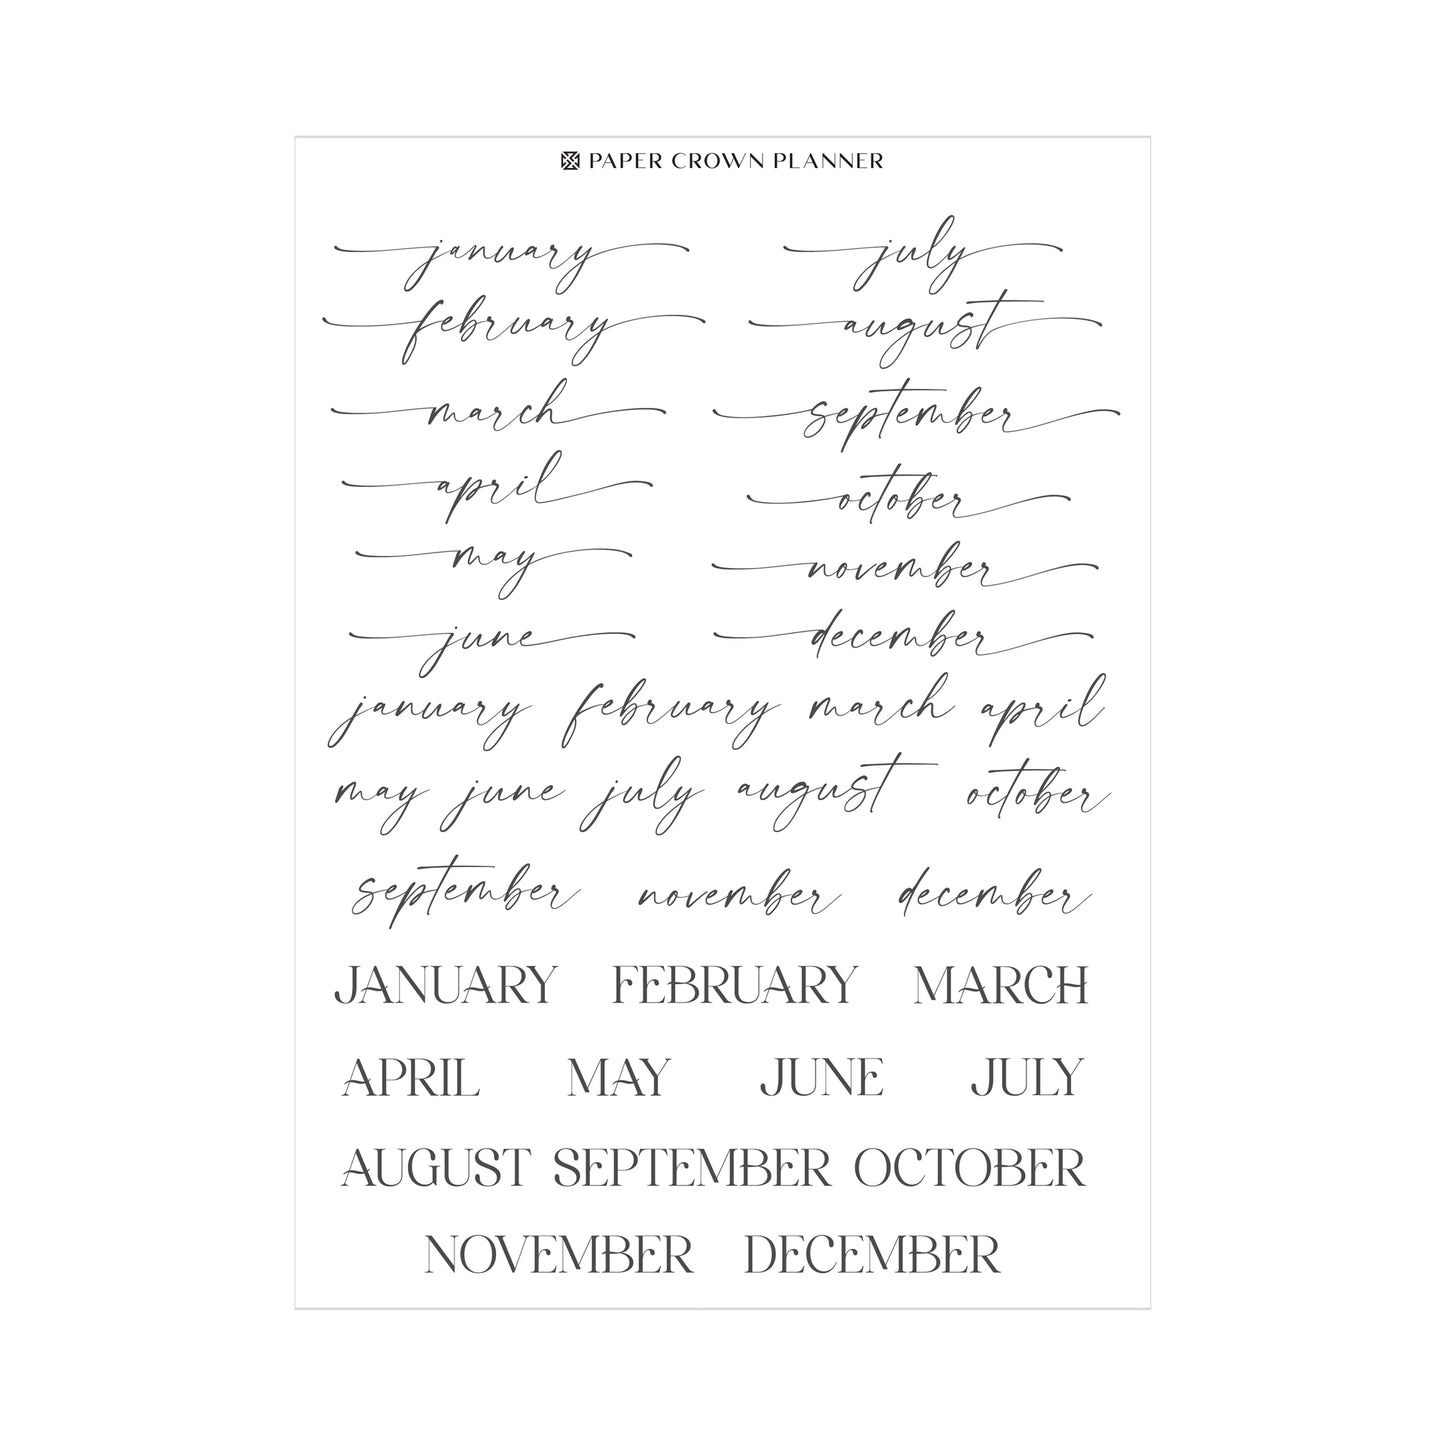 PAPER CROWN PLANNER
january july
february august
march september
april october
may november
june december
january february march april
may june july august october
september november december
JANUARY FEBRUARY MARCH
APRIL MAY JUNE JULY
AUGUST SEPTEMBER OCTOBER
NOVEMBER DECEMBER